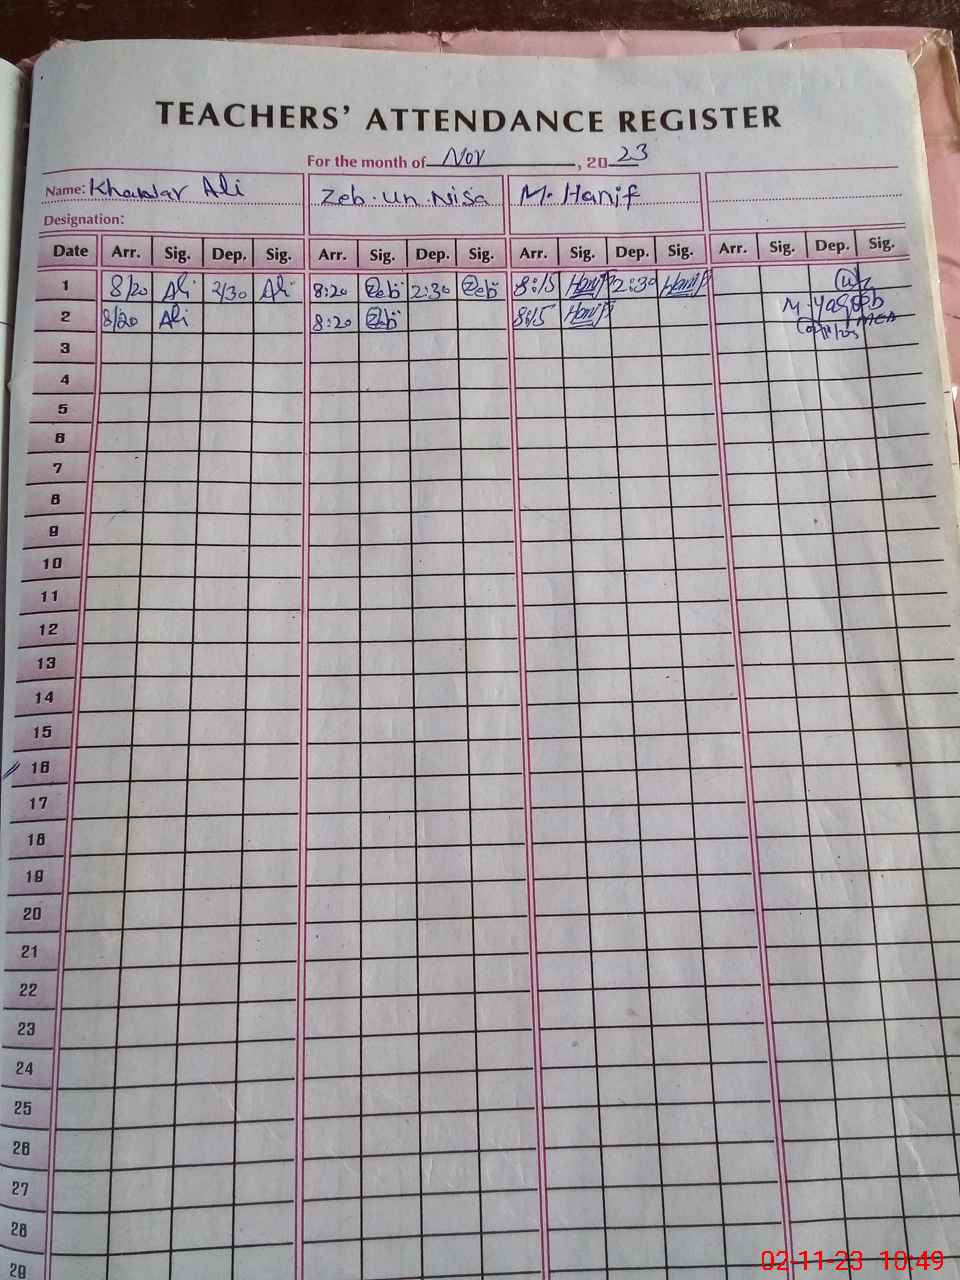 TEACHERS' ATTENDANCE REGISTER
For the month of Nov, 2023
Name: Khawar Ali Zeb.un.Nisa M. Hanif
Designation:
Date Arr. Sig. Dep. Sig. Arr. Sig. Dep. Sig. Arr. Sig. Dep. Sig. Arr. Sig. Dep. Sig.
1 8/20 Ali 2/30 Ali 8:20 Zeb 2:30 Zeb 8:15 Hanif 2:30 Hanif
2 8/20 Ali 8:20 Zeb 8:15 Hanif M. Yaqoob
MEA
3
4
5
6
7
8
9
10
11
12
13
14
15
16
17
18
19
20
21
22
23
24
25
26
27
28
29
02-11-23 10:49